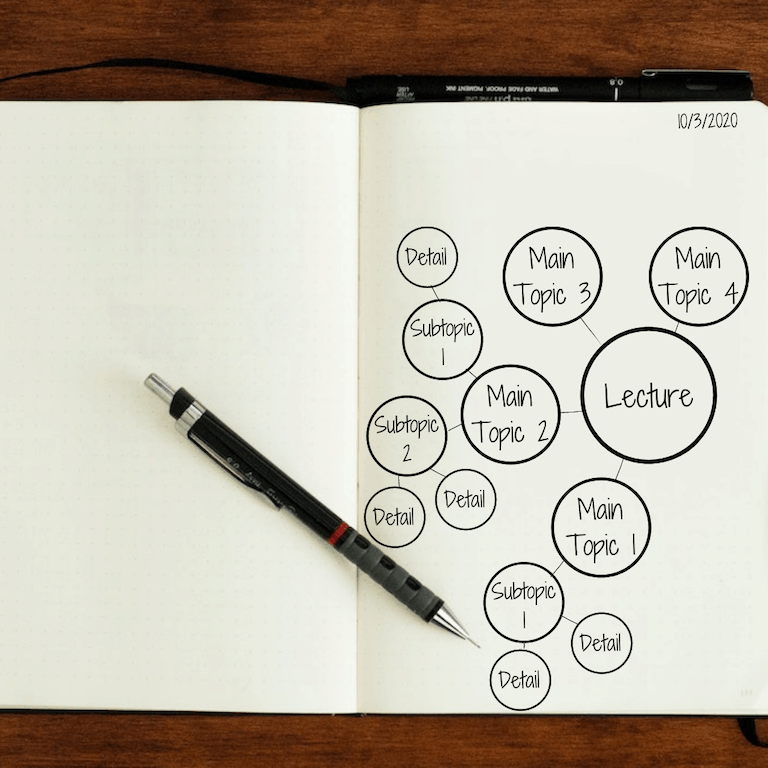 0.8
WATER AND FADE PROOF, PIGMENT INK
10/3/2020
Detail
Main
Topic 3
Main
Topic 4
Subtopic
1
Lecture
Main
Topic 2
Subtopic
2
Detail
Detail
Main
Topic 1
Subtopic
1
Detail
Detail